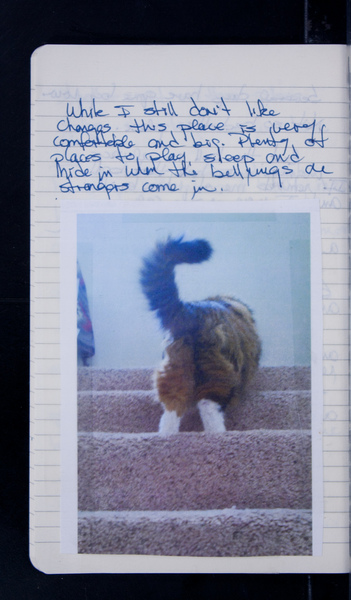 While I still don't like
changes this place is very
comfortable and big. Plenty of
places to play, sleep and
hide in when the bell rings or
strangers come in.